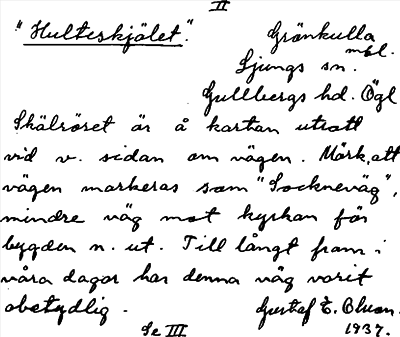 II
"Hulteskjälet". Grönkulla
mfl.
Ljungs sn.
Gullbergs hd. Ögl
Skälröret är å kartan utsatt
vid v. sidan om vägen. Märk, att
vägen markeras som "Sockneväg",
mindre väg mot kyrkan för
bygden n. ut. Till långt fram i
våra dagar har denna väg varit
obetydlig. Gustaf E. Olsson.
Se III 1937.